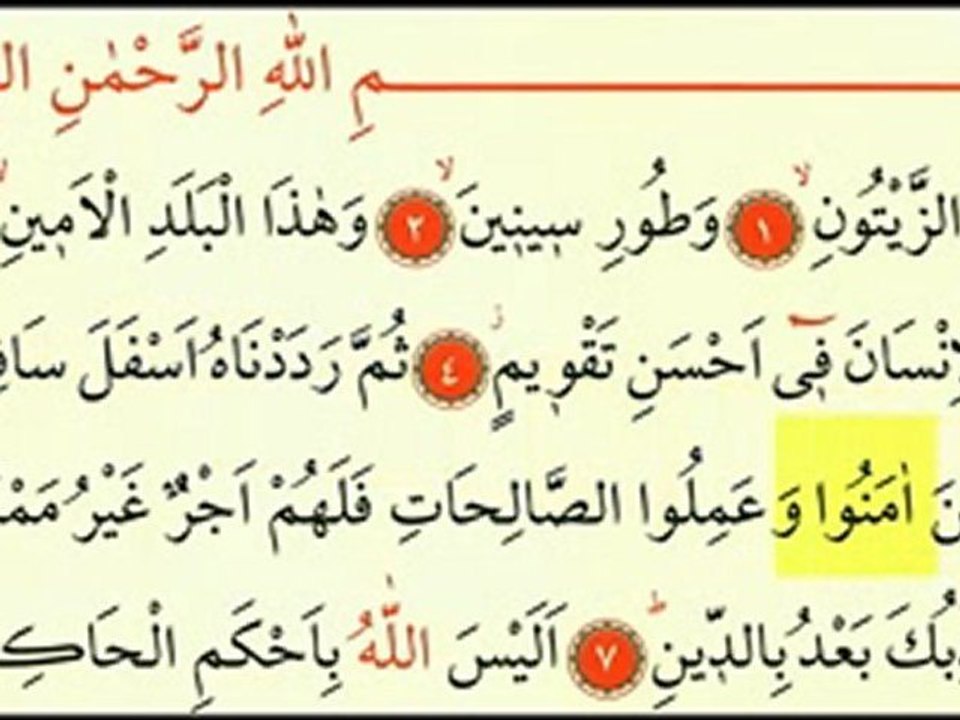 مِ اللّٰهِ الرَّحْمٰنِ
الزَّيْتُونِ ۙ ١ وَطُورِ سٖينٖينَ ۙ ٢ وَهٰذَا الْبَلَدِ الْاَمٖينِ
نْسَانَ فٖٓى اَحْسَنِ تَقْوٖيمٍ ۘ ٤ ثُمَّ رَدَدْنَاهُ اَسْفَلَ سَافِ
نَ اٰمَنُوا وَ عَمِلُوا الصَّالِحَاتِ فَلَهُمْ اَجْرٌ غَيْرُ مَمْ
بُكَ بَعْدُ بِالدّٖينِ ؕ ٧ اَلَيْسَ اللّٰهُ بِاَحْكَمِ الْحَاكِ